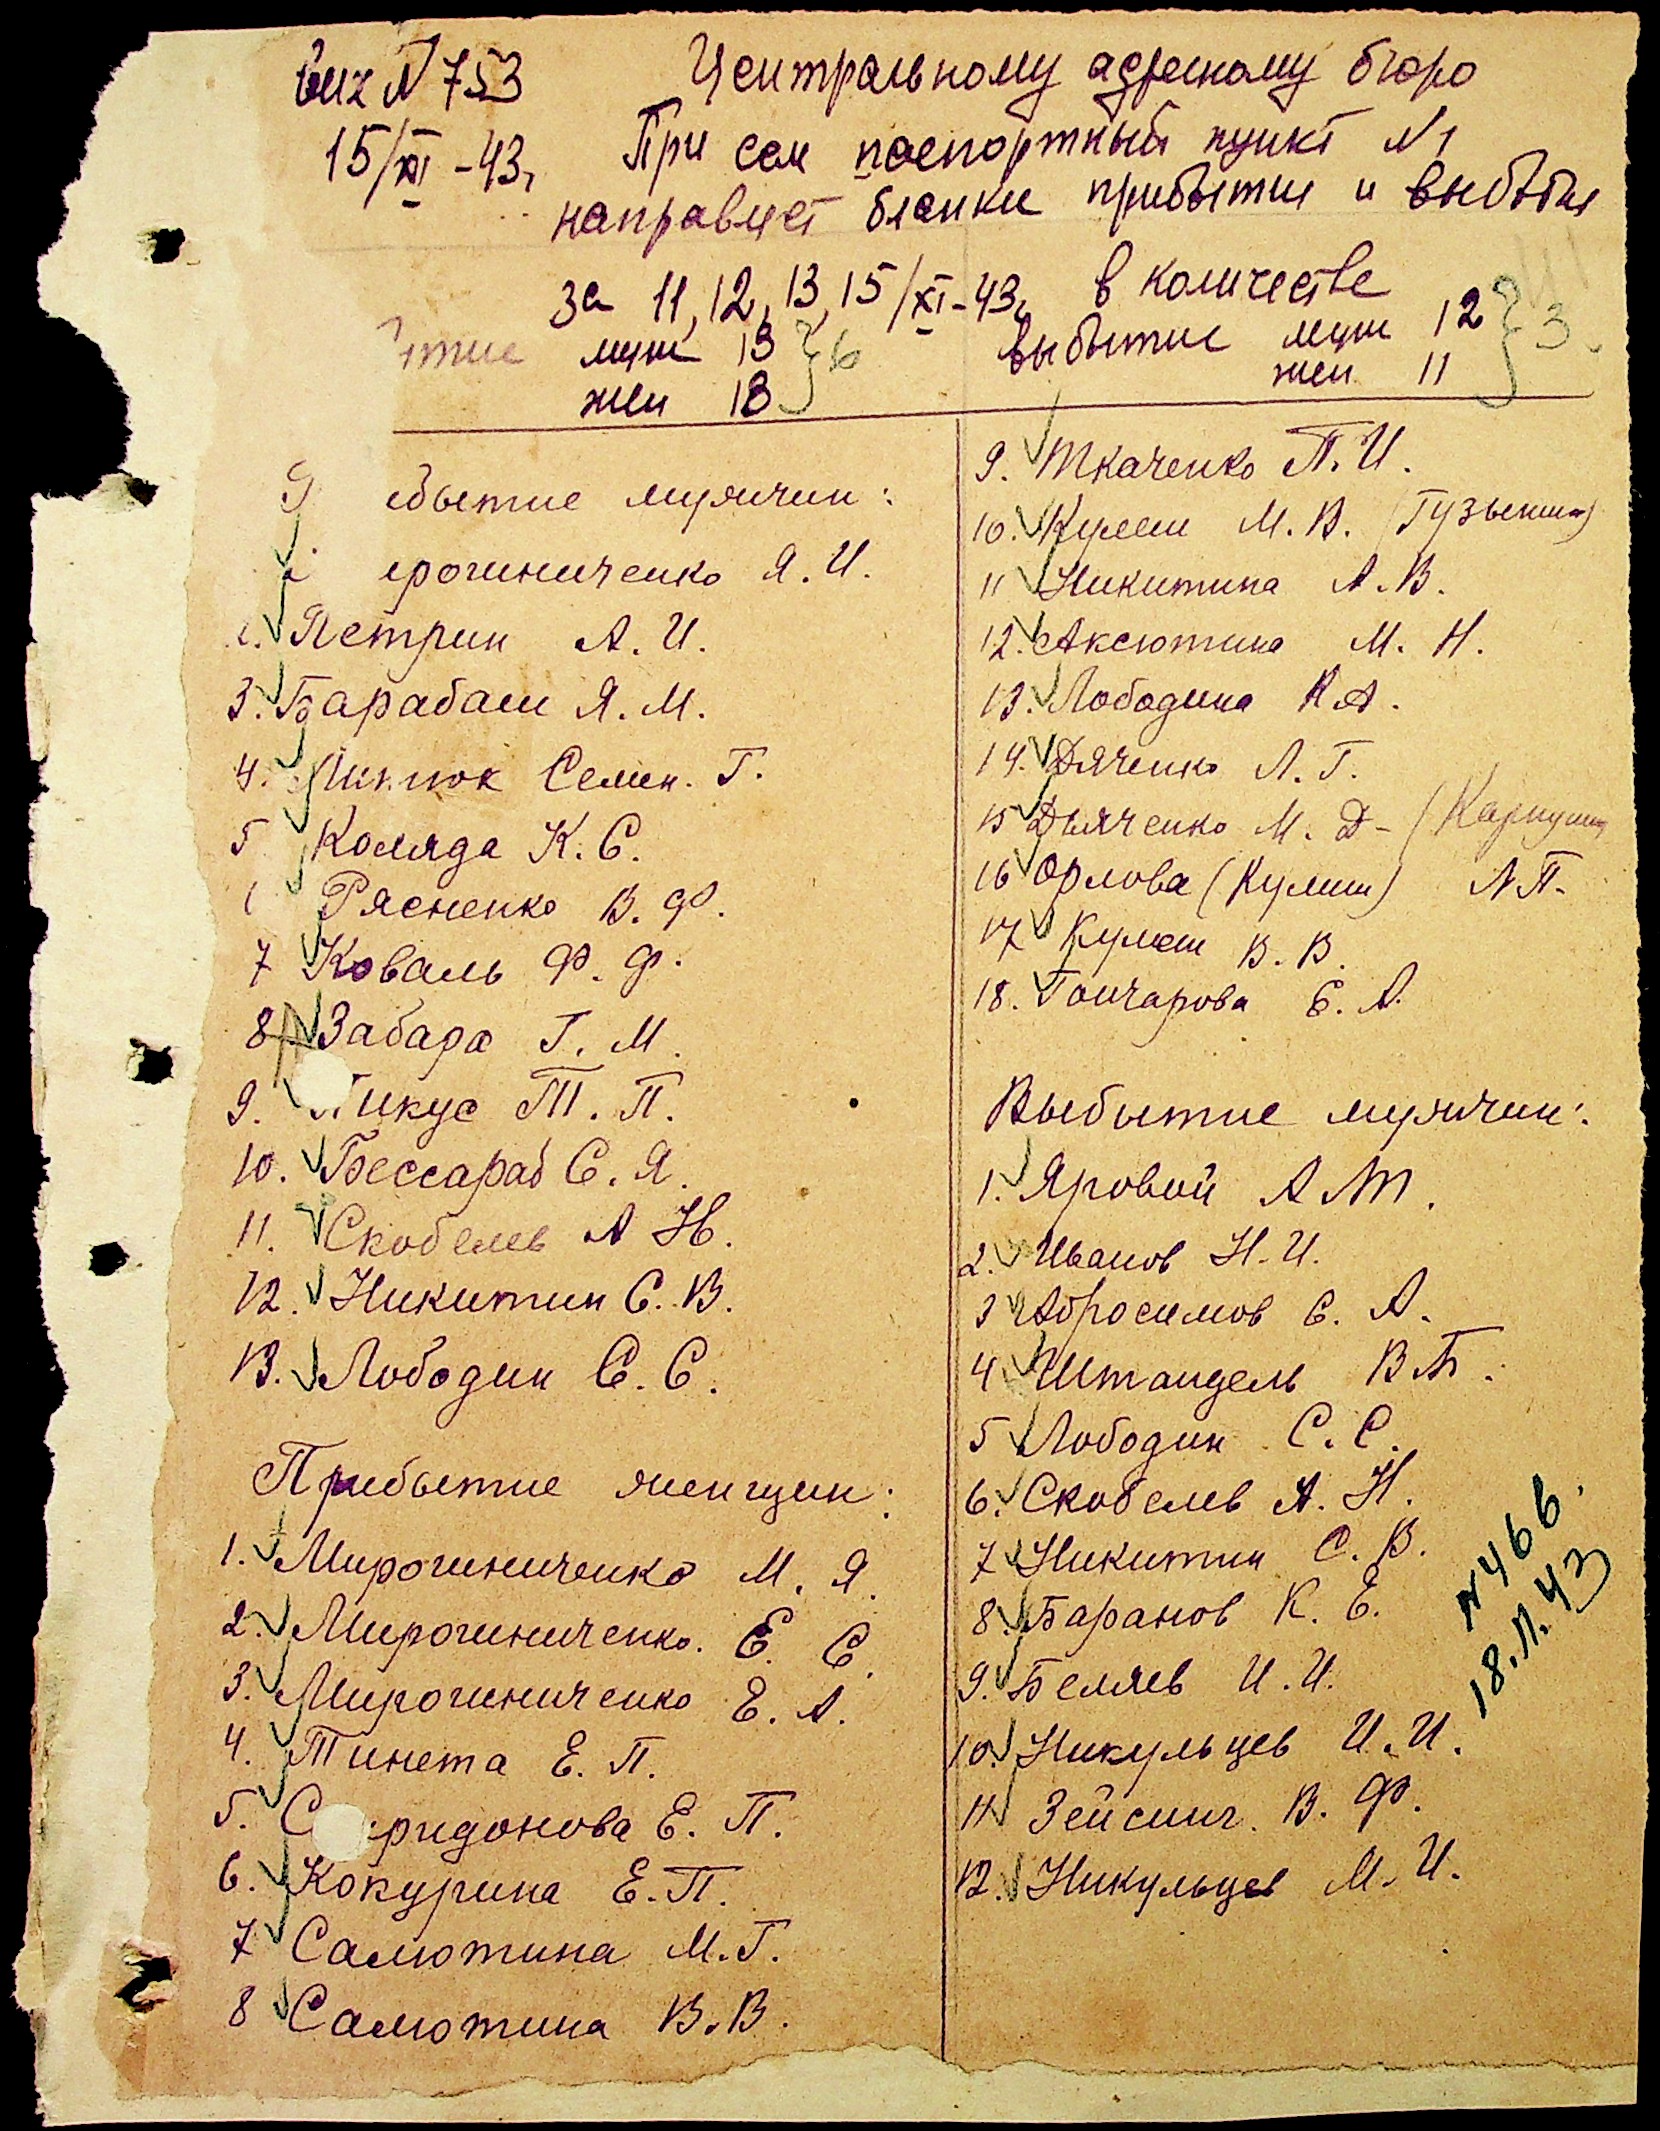 Вих N 753
15/XI-43г
Центральному адресному бюро
При сем паспортный пункт N1
направляет бланки прибытия и выбытия
за 11, 12, 13, 15/XI-43г в количестве
тие муж 13 } 6
жен 18
выбытие муж 12 } 3
жен 11
П бытие мужчин:
рошниченко Я. И.
2. Петрин А. И.
3. Барабаш Я. М.
4. Семен. Г.
5 Коляда К. С.
Рясненко В. Ф.
7 Коваль Ф. Ф.
8 Забара Г. М.
9. Пикус Т. П.
10. Бессараб С. Я.
11. Скобелев А Н.
12. Никитин С. В.
13. Лободин С. С.
Прибытие женщин:
1. Мирошниченко М. Я.
2. Мирошниченко. Е. С.
3. Мирошниченко Е. А.
4. Тинета Е. П.
5. С ридонова Е. П.
6. Кокурина Е. П.
7 Салютина М. Г.
8 Салютина В. В.
9. Ткаченко П. И.
10. Кулеш М. В.
11 Никитина А. В.
12. Аксютина М. Н.
13. Лободина К А.
14. Дяченко Л. Г.
15 Дьяченко М. Д-
16 Орлова (Кулиш) П.
17 Кулеш В. В.
18. Гончарова Е. А.
Выбытие мужчин:
1. Яровой А Т.
2. Иванов Н. И.
3 Абросимов С. А.
4 Штандель В.
5 Лободин С. С.
6. Скобелев А. Н.
7 Никитин С. В.
8. Баранов К. Е.
9. Беляев И. И.
10. Никульцев И. И.
11 В. Ф.
12. Никульцев М. И.
N 466.
18.11.43